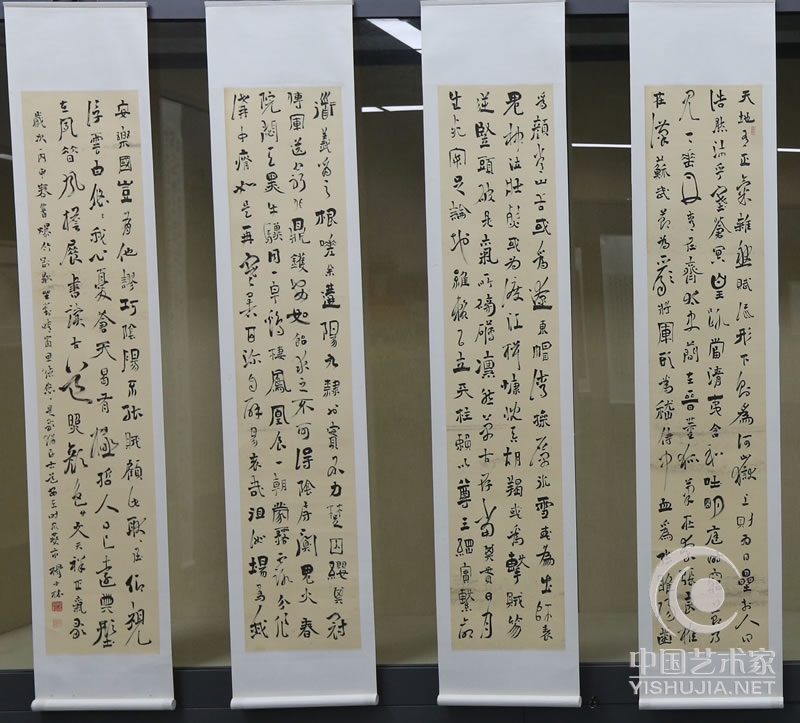 天地有正氣雜然賦流形下則為河嶽上則為日星於人曰
浩然沛乎塞蒼冥皇路當清夷含和吐明庭時窮節乃
見一一垂丹青在齊太史簡在晉董狐筆在秦張良椎
在漢蘇武節為嚴將軍頭為嵇侍中血為張睢陽齒
為顏常山舌或為遼東帽清操厲冰雪或為出師表
鬼神泣壯烈或為渡江楫慷慨吞胡羯或為擊賊笏
逆豎頭破裂是氣所磅礴凜然萬古存當其貫日月
生死安足論地維賴以立天柱賴以尊三綱實繫命
道義為之根嗟余遘陽九隸也實不力楚囚纓其冠
傳車送窮北鼎鑊甘如飴求之不可得陰房闃鬼火春
院閟天黑牛驥同一皁雞棲鳳凰食一朝蒙霧露分作
溝中瘠如是再寒暑百沴自辟易哀哉沮洳場為我
安樂國豈有他謬巧陰陽不能賊顧此耿耿在仰視
浮雲白悠悠我心憂蒼天曷有極哲人日已遠典型
在夙昔風檐展書讀古道照顏色文天祥正氣歌
歲次丙申
中国艺术家
YISHUJIA.NET